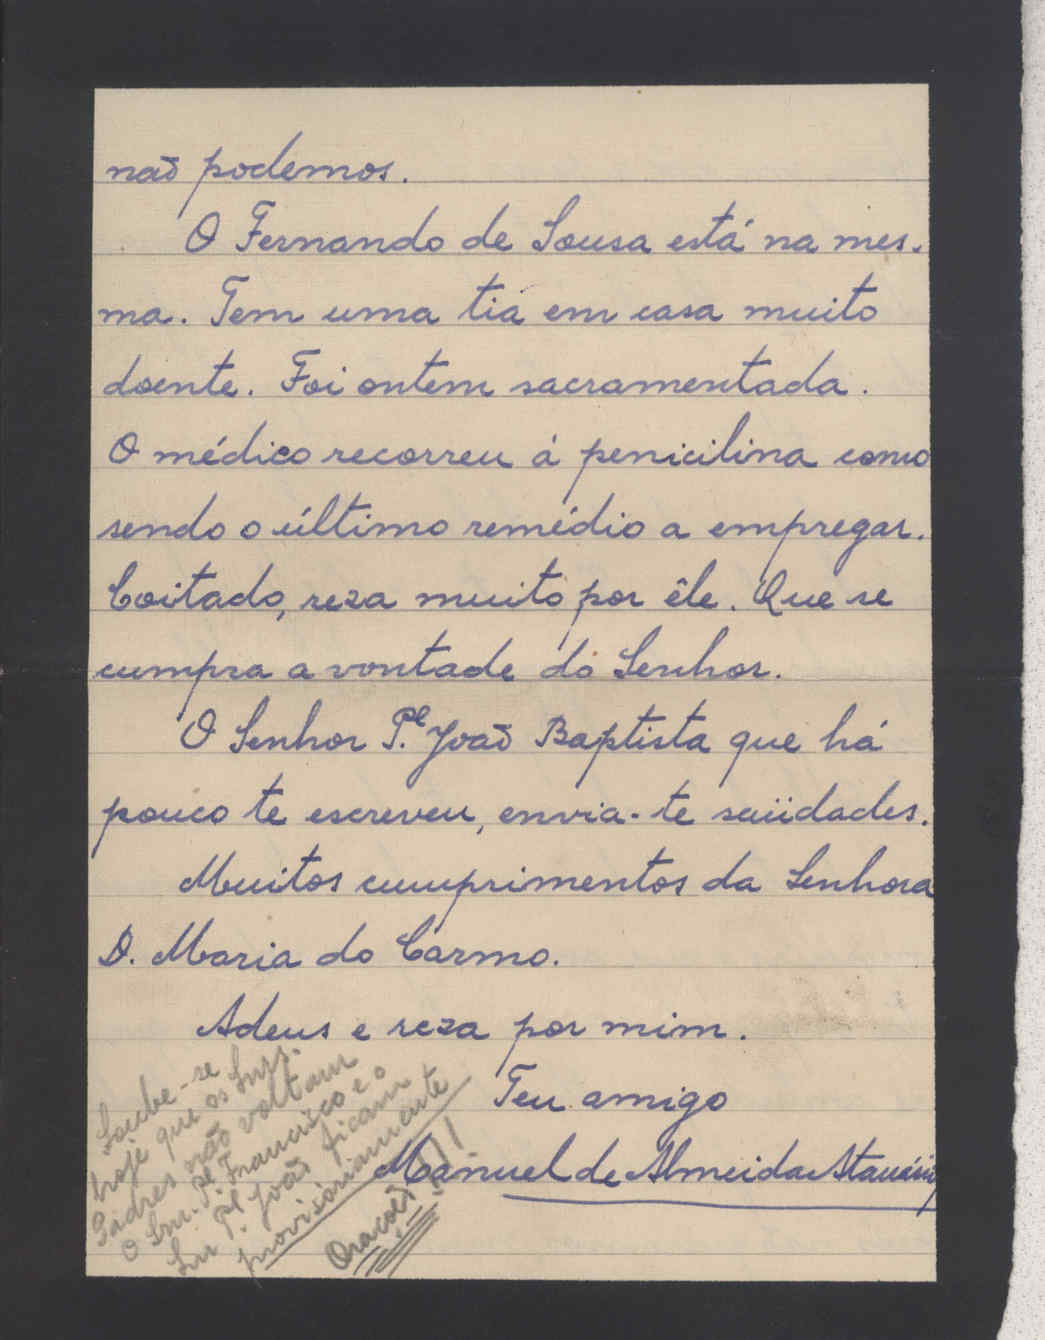 não podemos.
O Fernando de Sousa está na mes-
ma. Tem uma tia em casa muito
doente. Foi ontem sacramentada.
O médico recorreu á penicilina como
sendo o último remédio a empregar.
Coitado, reza muito por êle. Que se
cumpra a vontade do Senhor.
O Senhor P.e João Baptista que há
pouco te escreveu, envia-te saüdades.
Muitos cumprimentos da Senhora
D. Maria do Carmo.
Adeus e reza por mim.
Teu amigo
Manuel de Almeida
Soube-se
hoje que os Snrs.
Padres não voltam
O Snr. P.e Francisco e o
Snr P.e João ficam
provisóriamente
Oracões!!!